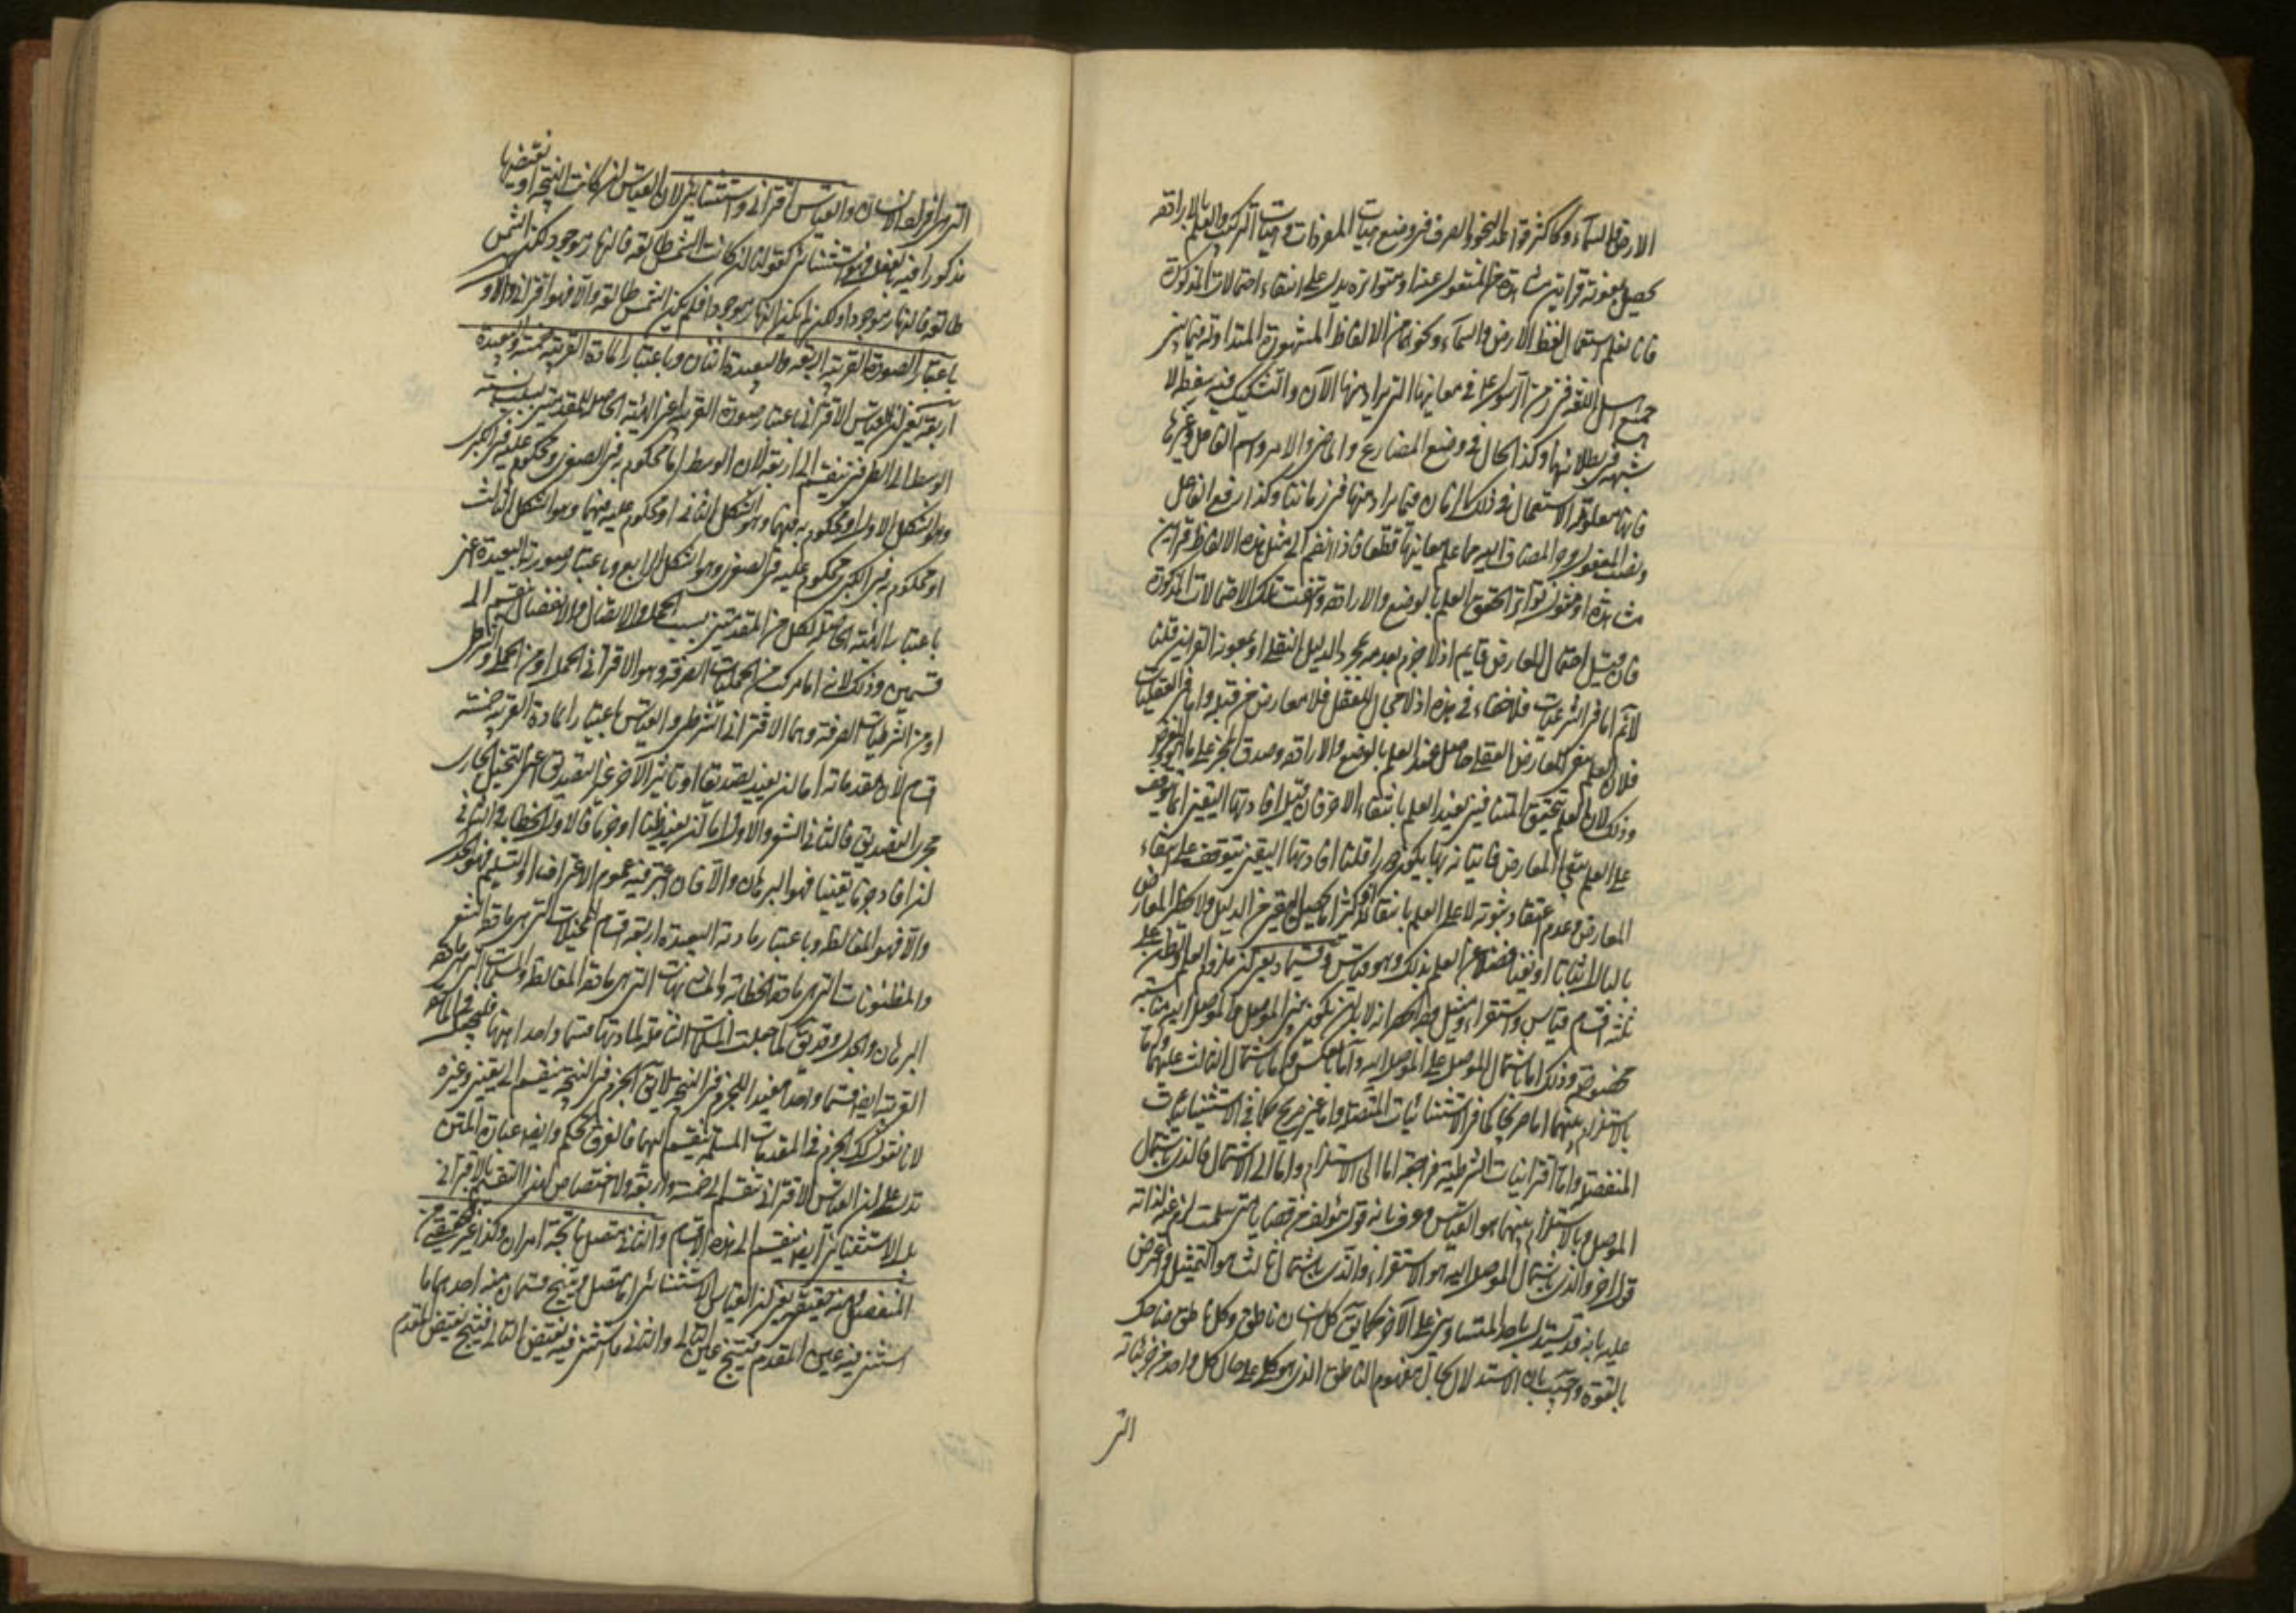 الارض والسماء وكاكثر قواعد النحو والصرف في وضع هيات المفردات وهيات التركيب والعلم بالارادة
يحصل بمعونة قراين مشاهدة من المنقول عنه او متواترة يدل على انتفاء احتمالات المذكورة
فانا نعلم استعمال لفظ الارض والسماء ونحوهما من الالفاظ المشهورة المتداولة فيما بين
جميع اهل اللغة في زمن الرسول في معانيها التي يراد منها الآن والتشكيك فيه سفسطة لا
شبهة في بطلانها وكذا الحال في وضع المضارع والماضي والامر واسم الفاعل وغيرها
فانها معلومة الاستعمال في ذلك الزمان فيما يراد منها في زماننا وكذا رفع الفاعل
ونصب المفعول وجر المضاف اليه مما علم معانيها قطعا فاذا انضم الى مثل هذه الالفاظ قراين
مشاهدة او منقولة تواترا تحقق العلم بالوضع والارادة وانتفت تلك الاحتمالات المذكورة
فان قيل احتمال المعارض قايم اذ لا جزم بعدمه بمجرد الدليل النقلي او بمعونة القراين قلنا
اما في الشرعيات فلا خفاء في هذه اذ لا مجال للعقل فلا معارض من قبله واما في العقليات
فلان العلم بنفي المعارض العقلي حاصل عند العلم بالوضع والارادة وصدق المخبر على ما
وذلك لان العلم بتحقق احد المتنافيين يفيد العلم بانتفاء الاخر فان قيل افادتها اليقين انما يتوقف
على العلم بنفي المعارض فاثباته بها يكون دورا قلنا افادتها اليقين يتوقف على انتفاء
المعارض وعدم اعتقاد ثبوته لا على العلم بانتفائه اذ كثيرا ما يحصل اليقين من الدليل ولا يخطر المعارض
بالبال اثباتا او نفيا فضلا عن العلم بذلك وهو قياس وقسيماه يعني ان ملزوم العلم والظن على
ثلثة اقسام قياس واستقراء وتمثيل وجه الحصر انه لا بد ان يكون بين الموصل والموصل اليه مناسبة
مخصوصة وذلك اما باشتمال الموصل على الموصل اليه واما بالعكس واما باشتمال الثالث عليهما
بالاستلزام بينهما اما صريحا كما في الاستثنائيات المتصلة واما غير صريح كما في الاستثنائيات
المنفصلة واما اقترانيات الشرطية فراجعة اما الى الاستلزام واما الى الاشتمال فالذي باشتمال
الموصل وبالاستلزام بينهما هو القياس وعرف بانه قول مؤلف من قضايا متى سلمت لزم عنه لذاته
قول اخر والذي باشتمال الموصل اليه هو الاستقراء والذي باشتمال الثالث هو التمثيل واعترض
عليه بانه قد يستدل باحد المتساويين على الآخر كما يقال كل انسان ناطق وكل ناطق ضاحك
بالقوة واجيب بان الاستدلال بحال مفهوم الناطق الذي هو كلي على حال كل واحد من جزئياته
التي
التي هي افراد الانسان والقياس اقتراني واستثنائي لان القياس ان كانت النتيجة او نقيضها
مذكورا فيه بالفعل فهو استثنائي كقولنا ان كانت الشمس طالعة فالنهار موجود لكن الشمس
طالعة فالنهار موجود او لكن لم يكن النهار موجودا فلم يكن الشمس طالعة والا فهو اقتراني والاول
باعتبار الصورة القريبة اربعة والبعيدة اثنان وباعتبار المادة القريبة خمسة والبعيدة
اربعة يعني ان القياس الاقتراني باعتبار صورته القريبة اعني الهيئة الحاصلة للمقدمتين بسبب نسبة
الوسط الى الطرفين ينقسم الى اربعة لان الوسط اما محكوم به في الصغرى ومحكوم عليه في الكبرى
وهو الشكل الاول او محكوم به فيهما وهو الشكل الثاني او محكوم عليه فيهما وهو الشكل الثالث
او محكوم به في الكبرى محكوم عليه في الصغرى وهو الشكل الرابع وباعتبار صورته البعيدة اعني
باعتبار الهيئة الحاصلة لكل من المقدمتين بسبب الحمل والاتصال والانفصال ينقسم الى
قسمين وذلك لانه اما مركب من الحمليات الصرفة وهو الاقتراني الحملي او من الحملي والشرطي
او من الشرطيات الصرفة وهما الاقتراني الشرطي والقياس باعتبار المادة القريبة خمسة
اقسام لان مقدماته اما ان يفيد تصديقا او تاثيرا آخر غير التصديق اعني التخييل الجاري
مجرى التصديق فالثاني الشعر والاول اما ان يفيد ظنا او جزما فالاول الخطابة والثاني
ان افاد جزما يقينيا فهو البرهان والا فان اعتبر فيه عموم الاعتراف او التسليم فهو الجدل
والا فهو المغالطة وباعتبار مادته البعيدة اربعة اقسام المخيلات التي هي مادة الشعر
والمظنونات التي هي مادة الخطابة والمشبهات التي هي مادة المغالطة والمسلمات التي هي مادة
البرهان والجدل وقد يقال كما جعلت المسلمات الشاملة لمادتها قسما واحدا منها فليجعل
القريبة ايضا قسما واحدا المفيد للجزم في النتيجة لا يقال الجزم في النتيجة ينقسم الى يقيني وغيره
لانا نقول كذلك الجزم في المقدمات المسلمة ينقسم اليهما فالفرق تحكم وايضا عبارة المتن
تدل على ان القياس الاقتراني ينقسم الى خمسة واربعة ولا اختصاص لهذا التقسيم بالاقتراني
بل الاستثنائي ايضا ينقسم الى هذه الاقسام والثاني متصل ناتجه امران وكذا غير الحقيقي من
المنفصل ومنه حقيقي يعني ان القياس الاستثنائي اما متصل وينتج قسمان منه احدهما ما
استثني فيه عين المقدم فينتج عين التالي والثاني ما استثني فيه نقيض التالي فينتج نقيض المقدم